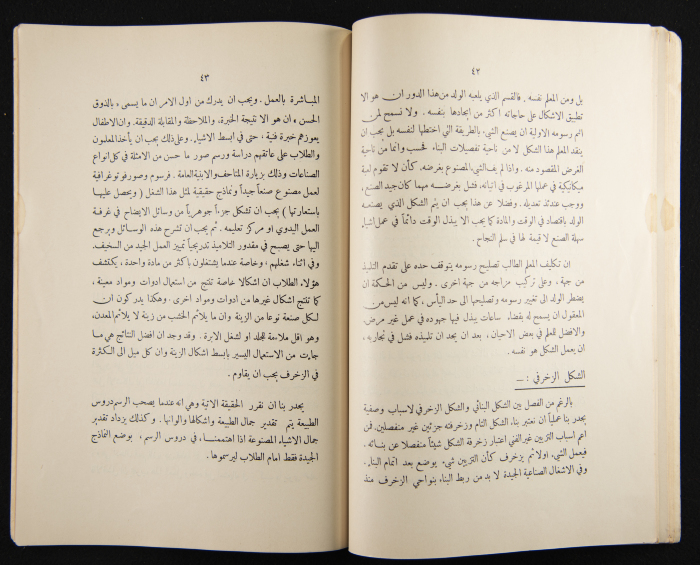 ٤٢
بل ومن المعلم نفسه . فالقسم الذي يلعبه الولد من هذا الدور ان هو الا
تطبيق الاشكال على حاجاته اكثر من ايجادها بنفسه . ولا نسمح لمن
اتم رسومه الاولية ان يصنع الشيء بالطريقة التي اختطها لنفسه بل يجب ان
ينقد المعلم هذا الشكل لا من ناحية تفصيلات البناء فحسب وانما من ناحية
الغرض المقصود منه . واذا لم يف الشيء المصنوع بغرضه ، كأن لا تقوم لعبة
ميكانيكية في عملها المرغوب في اتيانه ، فشل بغرضه مهما كان جيد الصنع ،
ووجب عندئذ تعديله . وفضلا عن هذا يجب ان يتم الشكل الذي يصنعه
الولد باقتصاد في الوقت والمادة كما يجب الا يبذل الوقت دائماً في عمل اشياء
سهلة الصنع لا قيمة لها في سلم النجاح .
ان تكليف المعلم الطالب تصليح رسومه يتوقف حده على تقدم التلميذ
من جهة ، وعلى تركيب مزاجه من جهة اخرى . وليس من الحكمة ان
يضطر الولد الى تغيير رسومه وتصليحها الى حد اليأس ، كما انه ليس من
المعقول ان يسمح له بقضاء ساعات يبذل فيها جهوده في عمل غير مرض .
والافضل للمعلم في بعض الاحيان ، بعد ان يجد ان تلميذه فشل في تجاربه ،
ان يعمل الشكل هو نفسه .
الشكل الزخرفي : ــ
بالرغم من الفصل بين الشكل البنائي والشكل الزخرفي لاسباب وصفية
يجدر بنا عملياً ان نعتبر بناء الشكل التام وزخرفته جزئين غير منفصلين. فمن
اهم اسباب التزيين غير الفني اعتبار زخرفة الشكل شيئاً منفصلا عن بنائه .
فيعمل الشيء اولا ثم يزخرف كأن التزيين شيء يوضع بعد اتمام البناء .
وفي الاشغال الصناعية الجيدة لا بد من ربط البناء بنواحي الزخرف منذ
٤٣
المباشرة بالعمل . ويجب ان يدرك من اول الامر ان ما يسمى ، بالذوق
الحسن ، ان هو الا نتيجة الخبرة، والملاحظة والمقابلة الدقيقة. وان الاطفال
يعوزهم خبرة فنية ، حتى في ابسط الاشياء . وعلى ذلك يجب ان يأخذ المعلمون
والطلاب على عاتقهم دراسة ورسم صور ما حسن من الامثلة في كل انواع
الصناعات وذلك بزيارة المتاحف والابنية العامة . فرسوم وصور فوتوغرافية
لعمل مصنوع صنعاً جيداً ونماذج حقيقية لمثل هذا الشغل ( ويحصل عليها
باستعارتها ) يجب ان تشكل جزءاً جوهرياً من وسائل الايضاح في غرفة
العمل اليدوي او مركز تعليمه . ثم يجب ان تشرح هذه الوسائل ويرجع
اليها حتى يصبح في مقدور التلاميذ تدريجياً تمييز العمل الجيد من السخيف.
وفي اثناء شغلهم ، وخاصة عندما يشتغلون باكثر من مادة واحدة ، يكتشف
هؤلاء الطلاب ان اشكالا خاصة تنتج من استعمال ادوات ومواد معينة ،
كما تنتج اشكال غيرها من ادوات ومواد اخرى . وهكذا يدركون ان
لكل صنعة نوعا من الزينة وان ما يلائم الخشب من زينة لا يلائم المعدن،
وهو اقل ملاءمة للجلد او لشغل الابرة . وقد وجد ان افضل النتائج هي ما
جاءت من الاستعمال اليسير بابسط اشكال الزينة وان كل ميل الى الكثرة
في الزخرف يجب ان يقاوم .
يجدر بنا ان نقرر الحقيقة الاتية وهي انه عندما يصحب الرسم دروس
الطبيعة يتم تقدير جمال الطبيعة واشكالها والوانها . وكذلك يزداد تقدير
جمال الاشياء المصنوعة اذا اهتممنا ، في دروس الرسم ، بوضع النماذج
الجيدة فقط امام الطلاب ليرسموها .